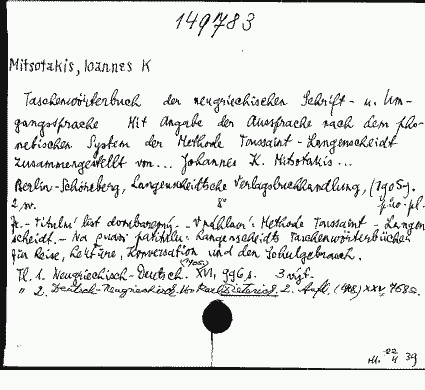 149783
Mitsotakis, Ioannes K
Taschenwörterbuch der neugriechischen Schrift- u. Um-
gangssprache Mit Angabe der Aussprache nach dem pho-
netischen System der Methode Toussaint - Langenscheidt
zusammengestellt von... Johannes K. Mitsotakis...
Berlin-Schöneberg, Langenscheidtsche Verlagsbuchhandlung, (1905).
2 sv. 8°
Je. - Titulní list dvoubarevný. - V záhlaví: Methode Toussaint - Langen
scheidt. - Na pravé patitulu: Langenscheidts Taschenwörterbücher
für Reise, Lektüre, Konversation und den Schulgebrauch.
Tl. 1. Neugriechisch-Deutsch. (1905) XVI, 996 s.
" 2. Deutsch-Neugriechisch. Von Karl Dieterich. 2. Aufl. (1908) XXV, 768 s.
22
4 39